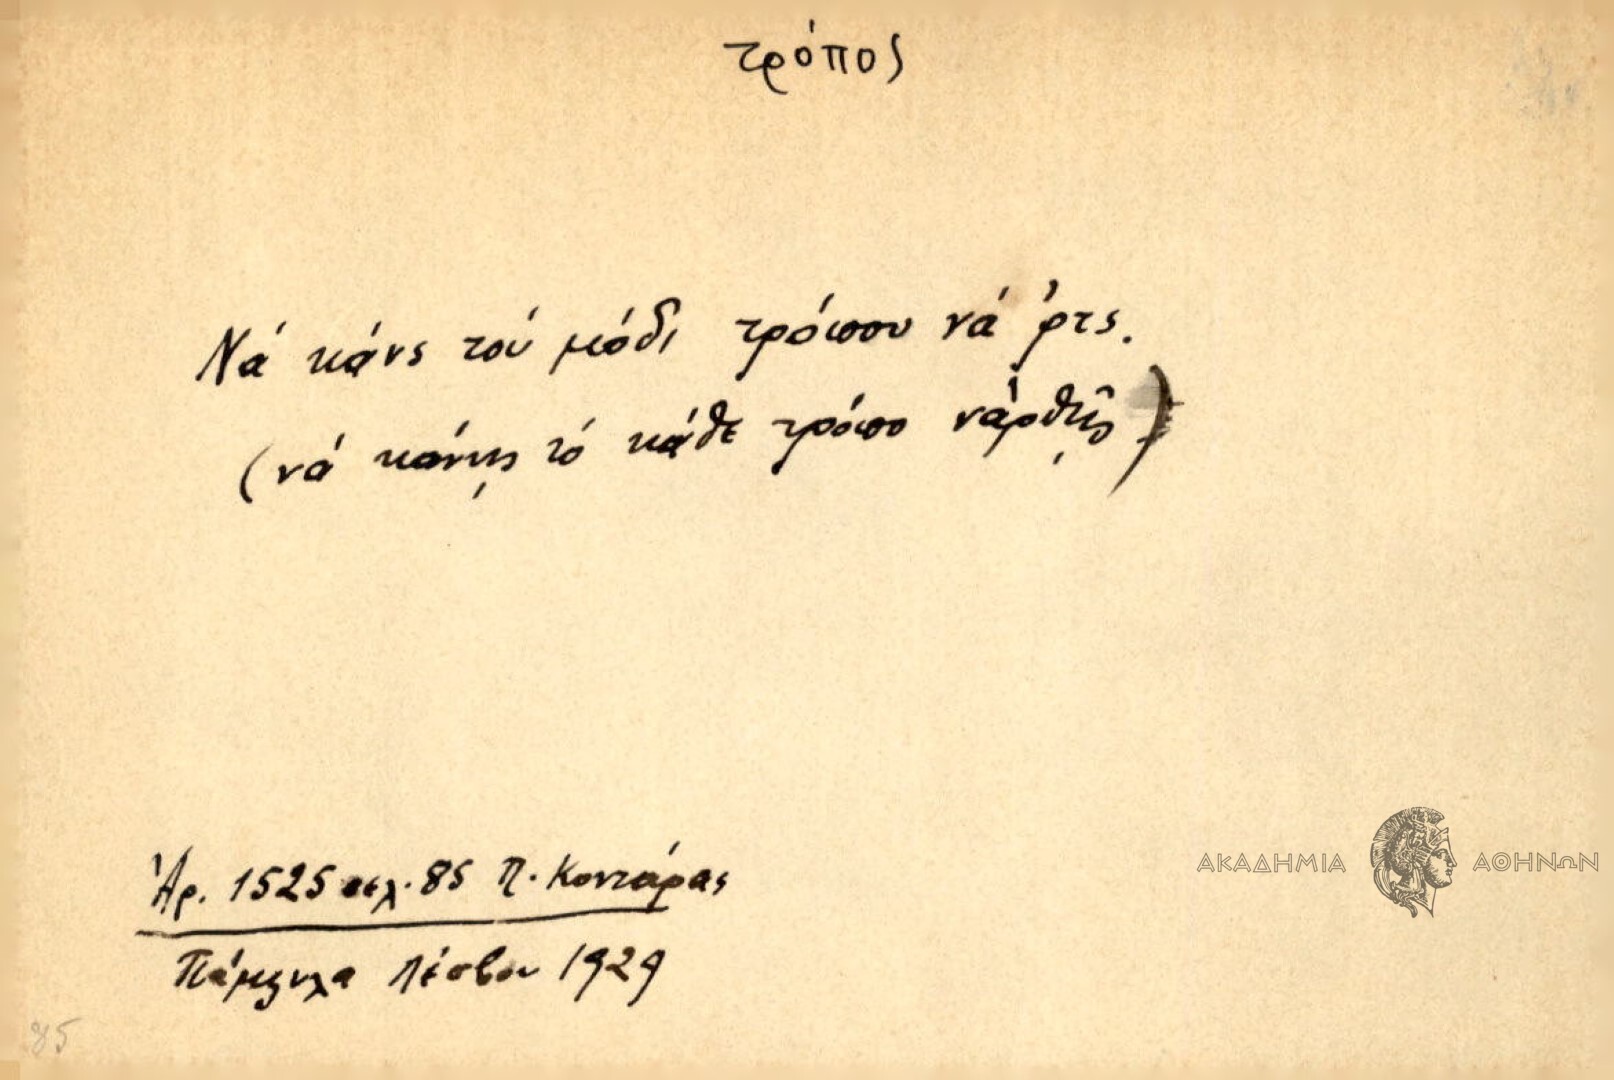 τρόπος
Νά κάνς τού μόδι τρόπου νά ῤτς.
(νά κάνῃς τό κάθε τρόπο νάρθῇς)
Ἀρ. 1525 σελ. 85 Π. Κοντάρας
Πάμφυλα Λέσβου 1929
85
ΑΚΑΔΗΜΙΑ ΑΘΗΝΩΝ